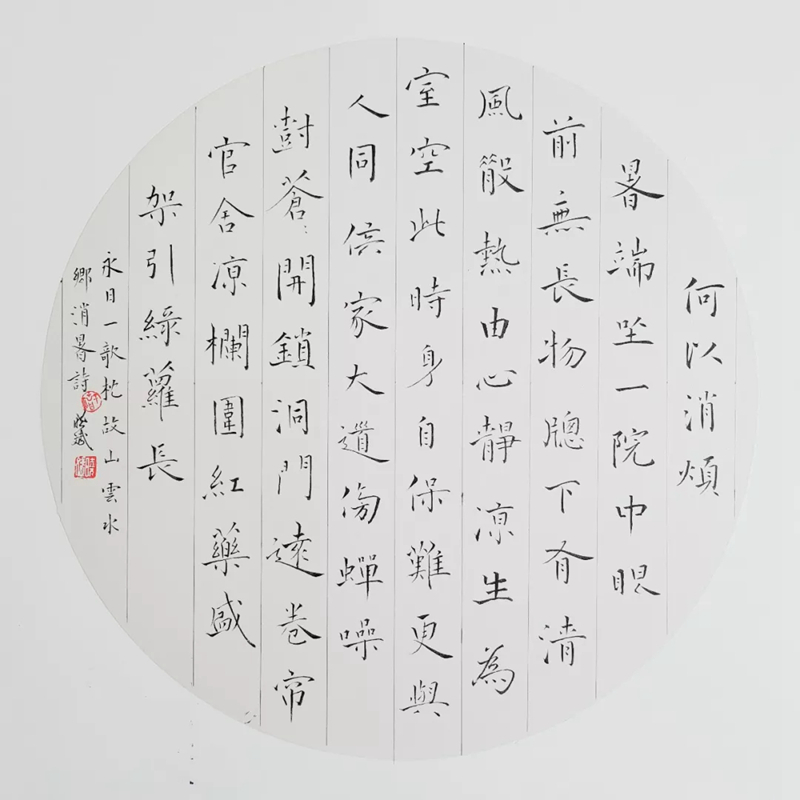 何以消煩
暑端坐一院中眼
前無長物牕下有清
風散熱由心靜凉生為
室空此時身自保難更與
人同侯家大道傍蟬噪
樹蒼〻開鎖洞門遠卷帘
官舍凉欄圍紅藥盛
架引綠蘿長
永日一欹枕故山雲水
鄉消暑詩